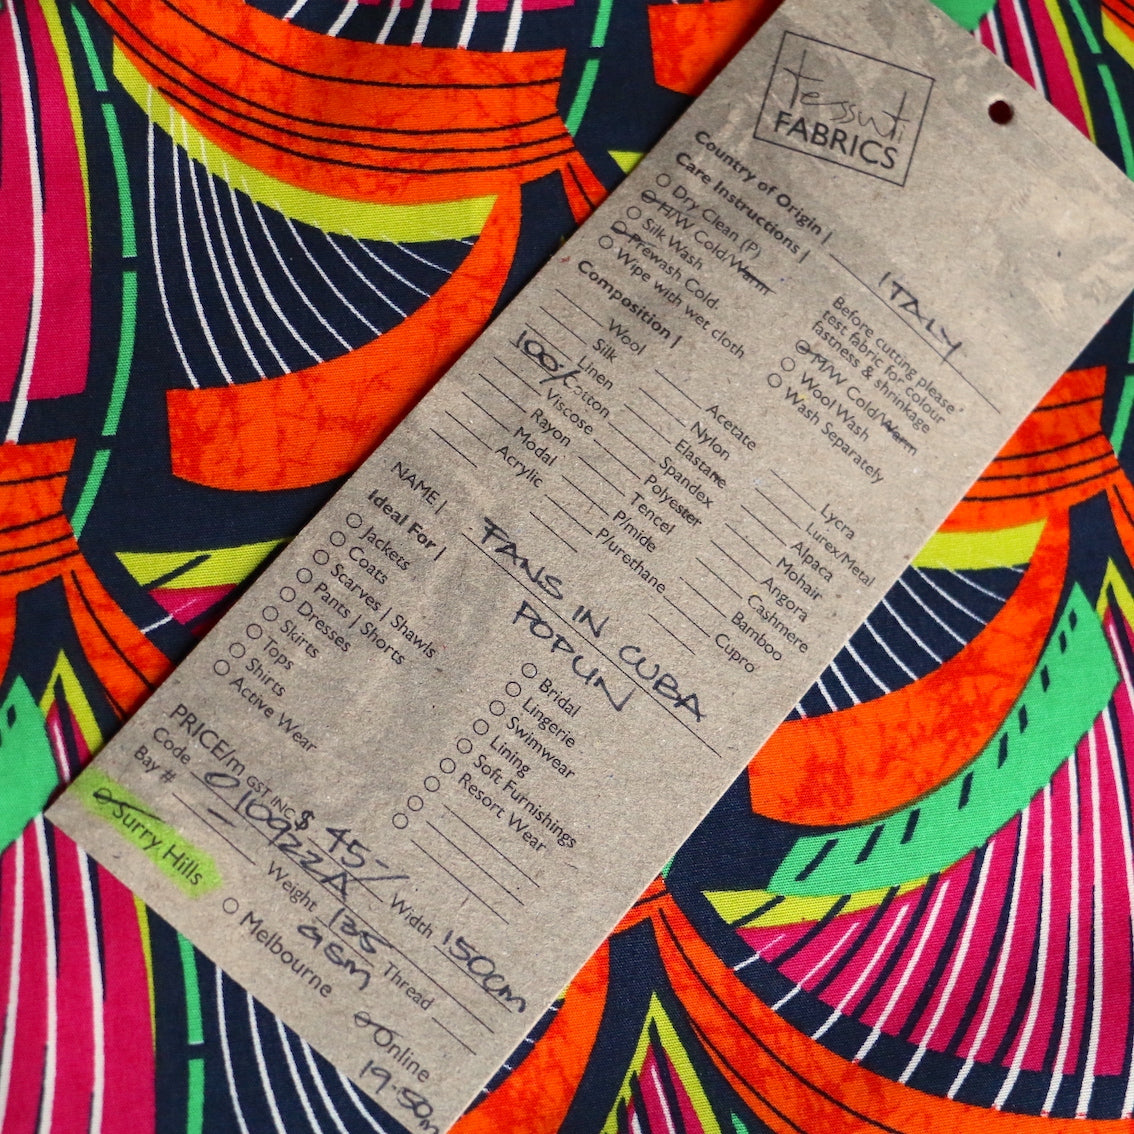 tessuti
FABRICS
Country of Origin | ITALY
Care Instructions |
Dry Clean (P)
H/W Cold/Warm
Silk Wash
Prewash Cold.
Wipe with wet cloth
Before cutting please
test fabric for colour
fastness & shrinkage
M/W Cold/Warm
Wool Wash
Wash Separately
Composition |
Wool
Silk
Linen
100% Cotton
Viscose
Rayon
Modal
Acrylic
Acetate
Nylon
Elastane
Spandex
Polyester
Tencel
P/mide
P/urethane
Lycra
Lurex/Metal
Alpaca
Mohair
Angora
Cashmere
Bamboo
Cupro
NAME | FANS IN CUBA
POPLIN
Ideal For |
Jackets
Coats
Scarves | Shawls
Pants | Shorts
Dresses
Skirts
Tops
Shirts
Active Wear
Bridal
Lingerie
Swimwear
Lining
Soft Furnishings
Resort Wear
PRICE/m GST INC $ 45/- Width 150cm
Code 010922A Weight 135 GSM Thread
Bay #
Surry Hills
Melbourne
Online
19.50m